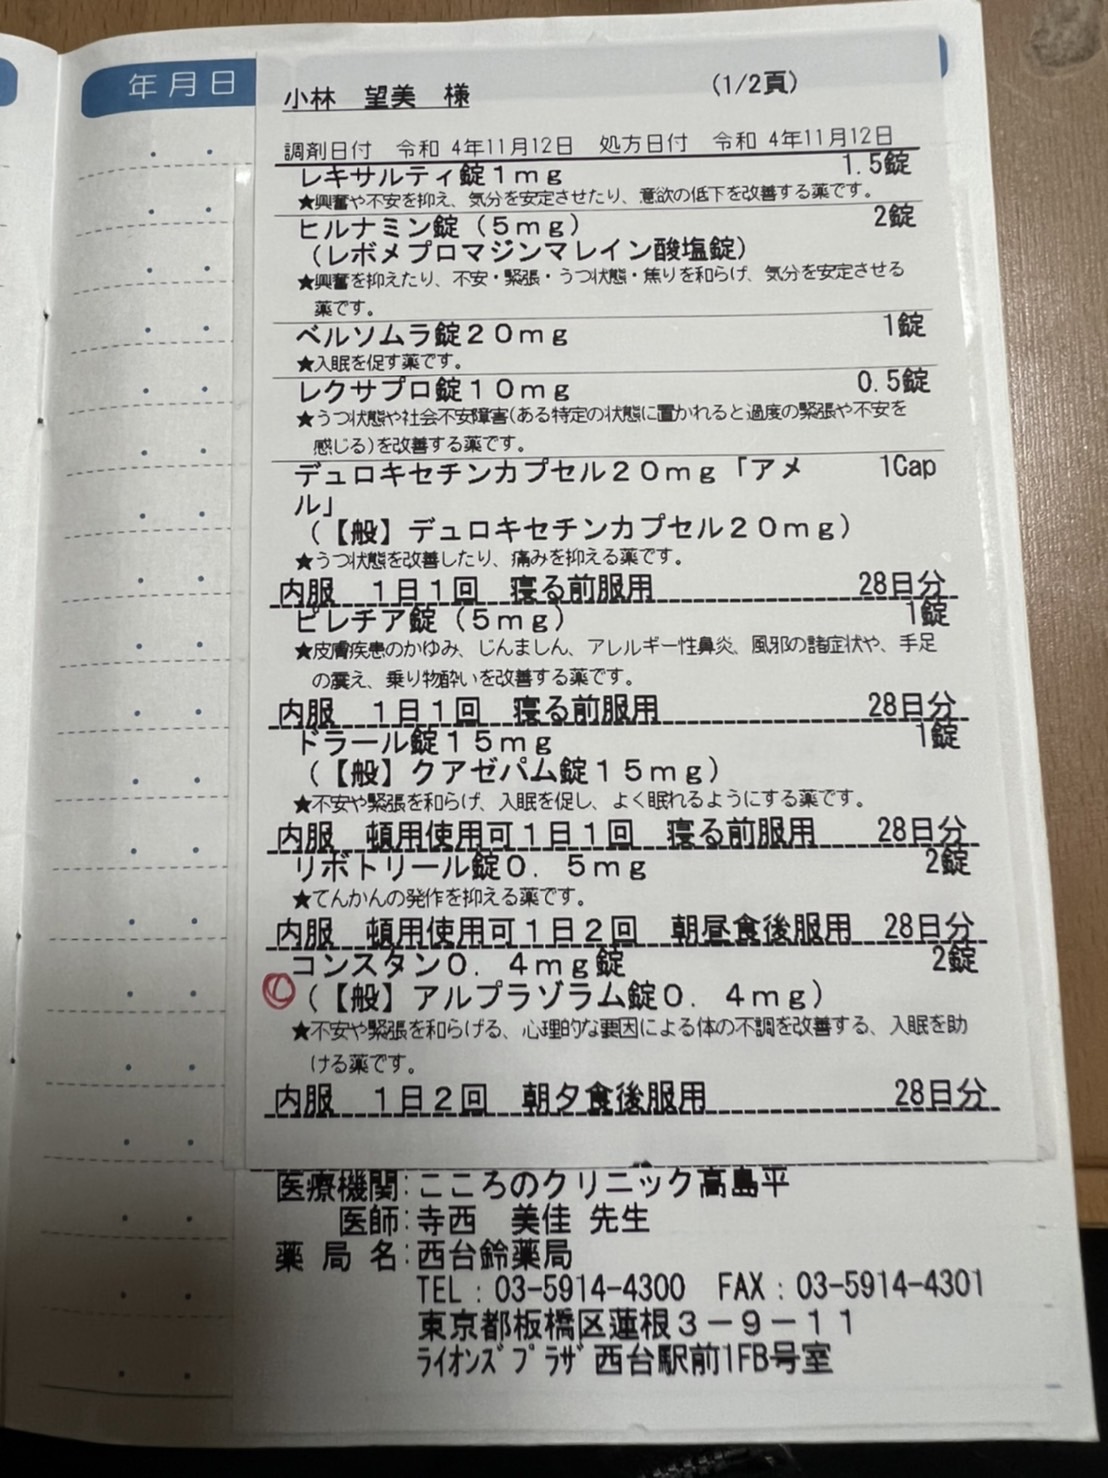 年月日
小林 望美 様 (1/2頁)
調剤日付 令和 4年11月12日 処方日付 令和 4年11月12日
レキサルティ錠1mg 1.5錠
★興奮や不安を抑え、気分を安定させたり、意欲の低下を改善する薬です。
ヒルナミン錠(5mg) 2錠
(レボメプロマジンマレイン酸塩錠)
★興奮を抑えたり、不安・緊張・うつ状態・焦りを和らげ、気分を安定させる
薬です。
ベルソムラ錠20mg 1錠
★入眠を促す薬です。
レクサプロ錠10mg 0.5錠
★うつ状態や社会不安障害(ある特定の状態に置かれると過度の緊張や不安を
感じる)を改善する薬です。
デュロキセチンカプセル20mg「アメ 1Cap
ル」
(【般】デュロキセチンカプセル20mg)
★うつ状態を改善したり、痛みを抑える薬です。
内服 1日1回 寝る前服用 28日分
ピレチア錠(5mg) 1錠
★皮膚疾患のかゆみ、じんましん、アレルギー性鼻炎、風邪の諸症状や、手足
の震え、乗り物酔いを改善する薬です。
内服 1日1回 寝る前服用 28日分
ドラール錠15mg 1錠
(【般】クアゼパム錠15mg)
★不安や緊張を和らげ、入眠を促し、よく眠れるようにする薬です。
内服 頓用使用可1日1回 寝る前服用 28日分
リボトリール錠0.5mg 2錠
★てんかんの発作を抑える薬です。
内服 頓用使用可1日2回 朝昼食後服用 28日分
コンスタン0.4mg錠 2錠
(【般】アルプラゾラム錠0.4mg)
★不安や緊張を和らげる、心理的な要因による体の不調を改善する、入眠を助
ける薬です。
内服 1日2回 朝夕食後服用 28日分
医療機関:こころのクリニック高島平
医師:寺西 美佳 先生
薬局名:西台鈴薬局
TEL:03-5914-4300 FAX:03-5914-4301
東京都板橋区蓮根3-9-11
ﾗｲｵﾝｽﾞﾌﾟﾗｻﾞ西台駅前1FB号室